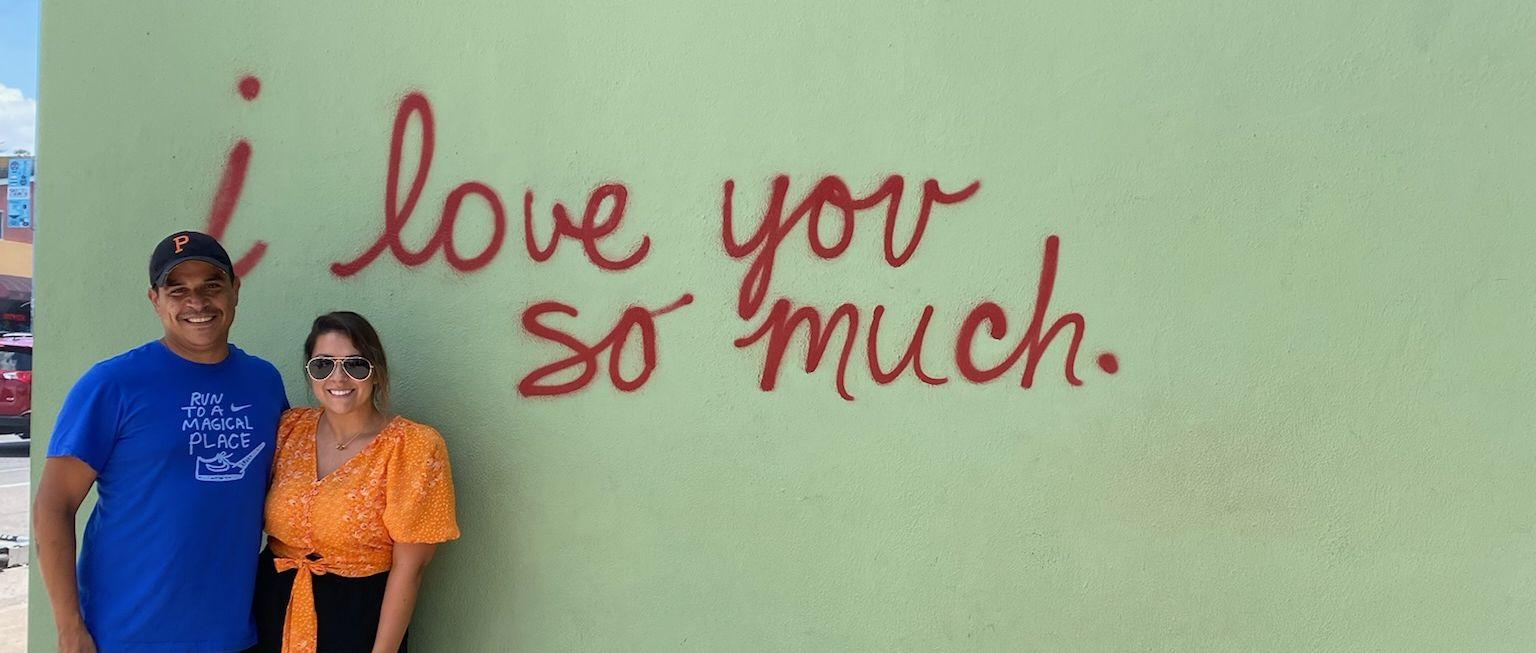 i love you
so much.
P
RUN
TO A
MAGICAL
PLACE